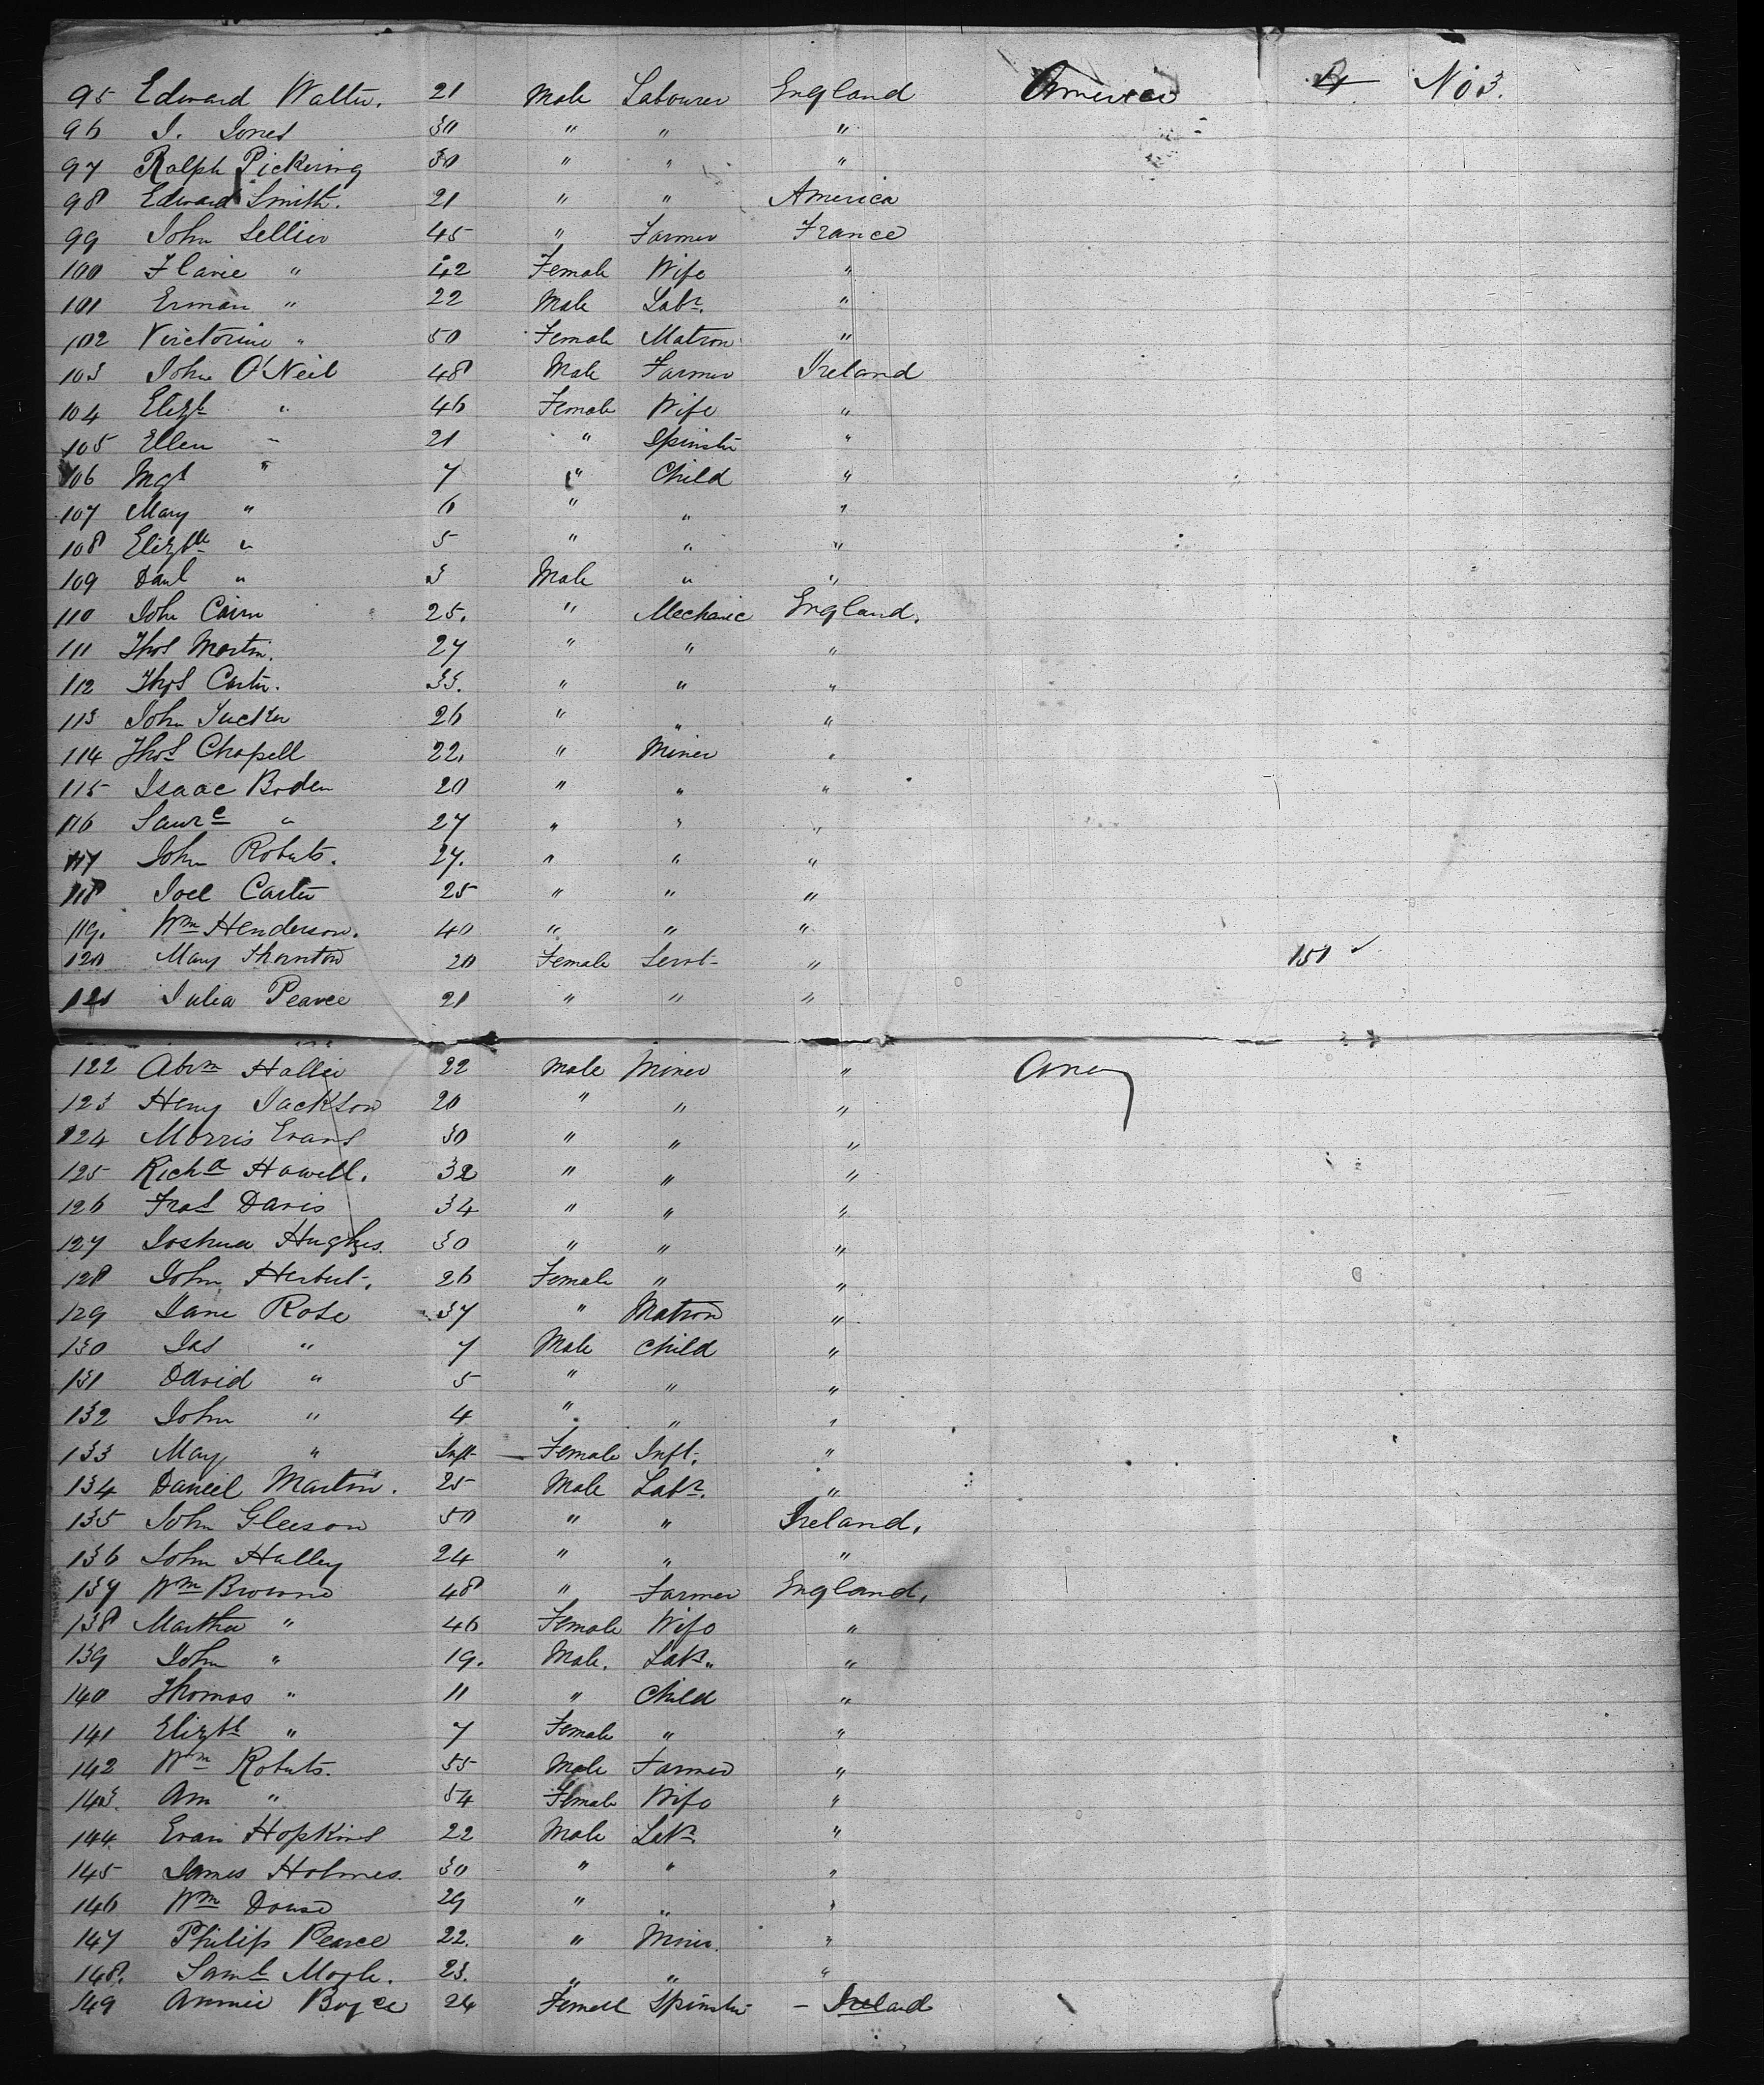 95 Edward Walter. 21 Male Labourer England America St No 3.
96 J. Jones 30 " " "
97 Ralph Pickering 30 " " "
98 Edward Smith. 21 " " America
99 John Sellier 45 " Farmer France
100 Flavie " 42 Female Wife "
101 Erman " 22 Male Labr. "
102 Victorine " 50 Female Matron "
103 John O'Neil 48 Male Farmer Ireland
104 Elizh " 46 Female Wife "
105 Ellen " 21 " Spinster "
106 Mgt " 7 " Child "
107 Mary " 6 " " "
108 Elizbth " 5 " " "
109 Danl " 3 Male " "
110 John Cairn 25. " Mechanic England.
111 Thos Martin. 27 " " "
112 Thos Carter. 33. " " "
113 John Tucker 26 " " "
114 Thos Chapell 22. " Miner "
115 Isaac Boden 20 " " "
116 Lawrc " 27 " " "
117 John Roberts. 27. " " "
118 Joel Carter 25 " " "
119. Wm Henderson. 40 " " "
120 Mary Thornton 20 Female Servt "  151 ✓
121 Julia Pearce 21 " " "
122 Abrm Hallier 22 Male Miner "
123 Heny Jackson 20 " " "
124 Morris Evans 30 " " "
125 Richd Howell. 32 " " "
126 Fras Davis 34 " " "
127 Joshua Hughes. 30 " " "
128 John Herbert. 26 Female " "
129 Jane Rose 37 " Matron "
130 Jas " 7 Male Child "
131 David " 5 " " "
132 John " 4 " " "
133 May " Inft Female Inft. "
134 Daniel Martin. 25 Male Labr. "
135 John Gleeson 50 " " Ireland.
136 John Halley 24 " " "
137 Wm Browne 48 " Farmer England.
138 Martha " 46 Female Wife "
139 John " 19. Male. Labr. "
140 Thomas " 11 " Child "
141 Elizbt " 7 Female " "
142 Wm Roberts. 55 Male Farmer "
143. Ann " 54 Female Wife "
144 Evan Hopkins 22 Male Labr. "
145 James Holmes. 30 " " "
146 Wm 29 " " "
147 Philip Pearce 22. " Miner. "
148. Saml 23. " " "
149 Annie Boyce 24 Female Spinster - Ireland